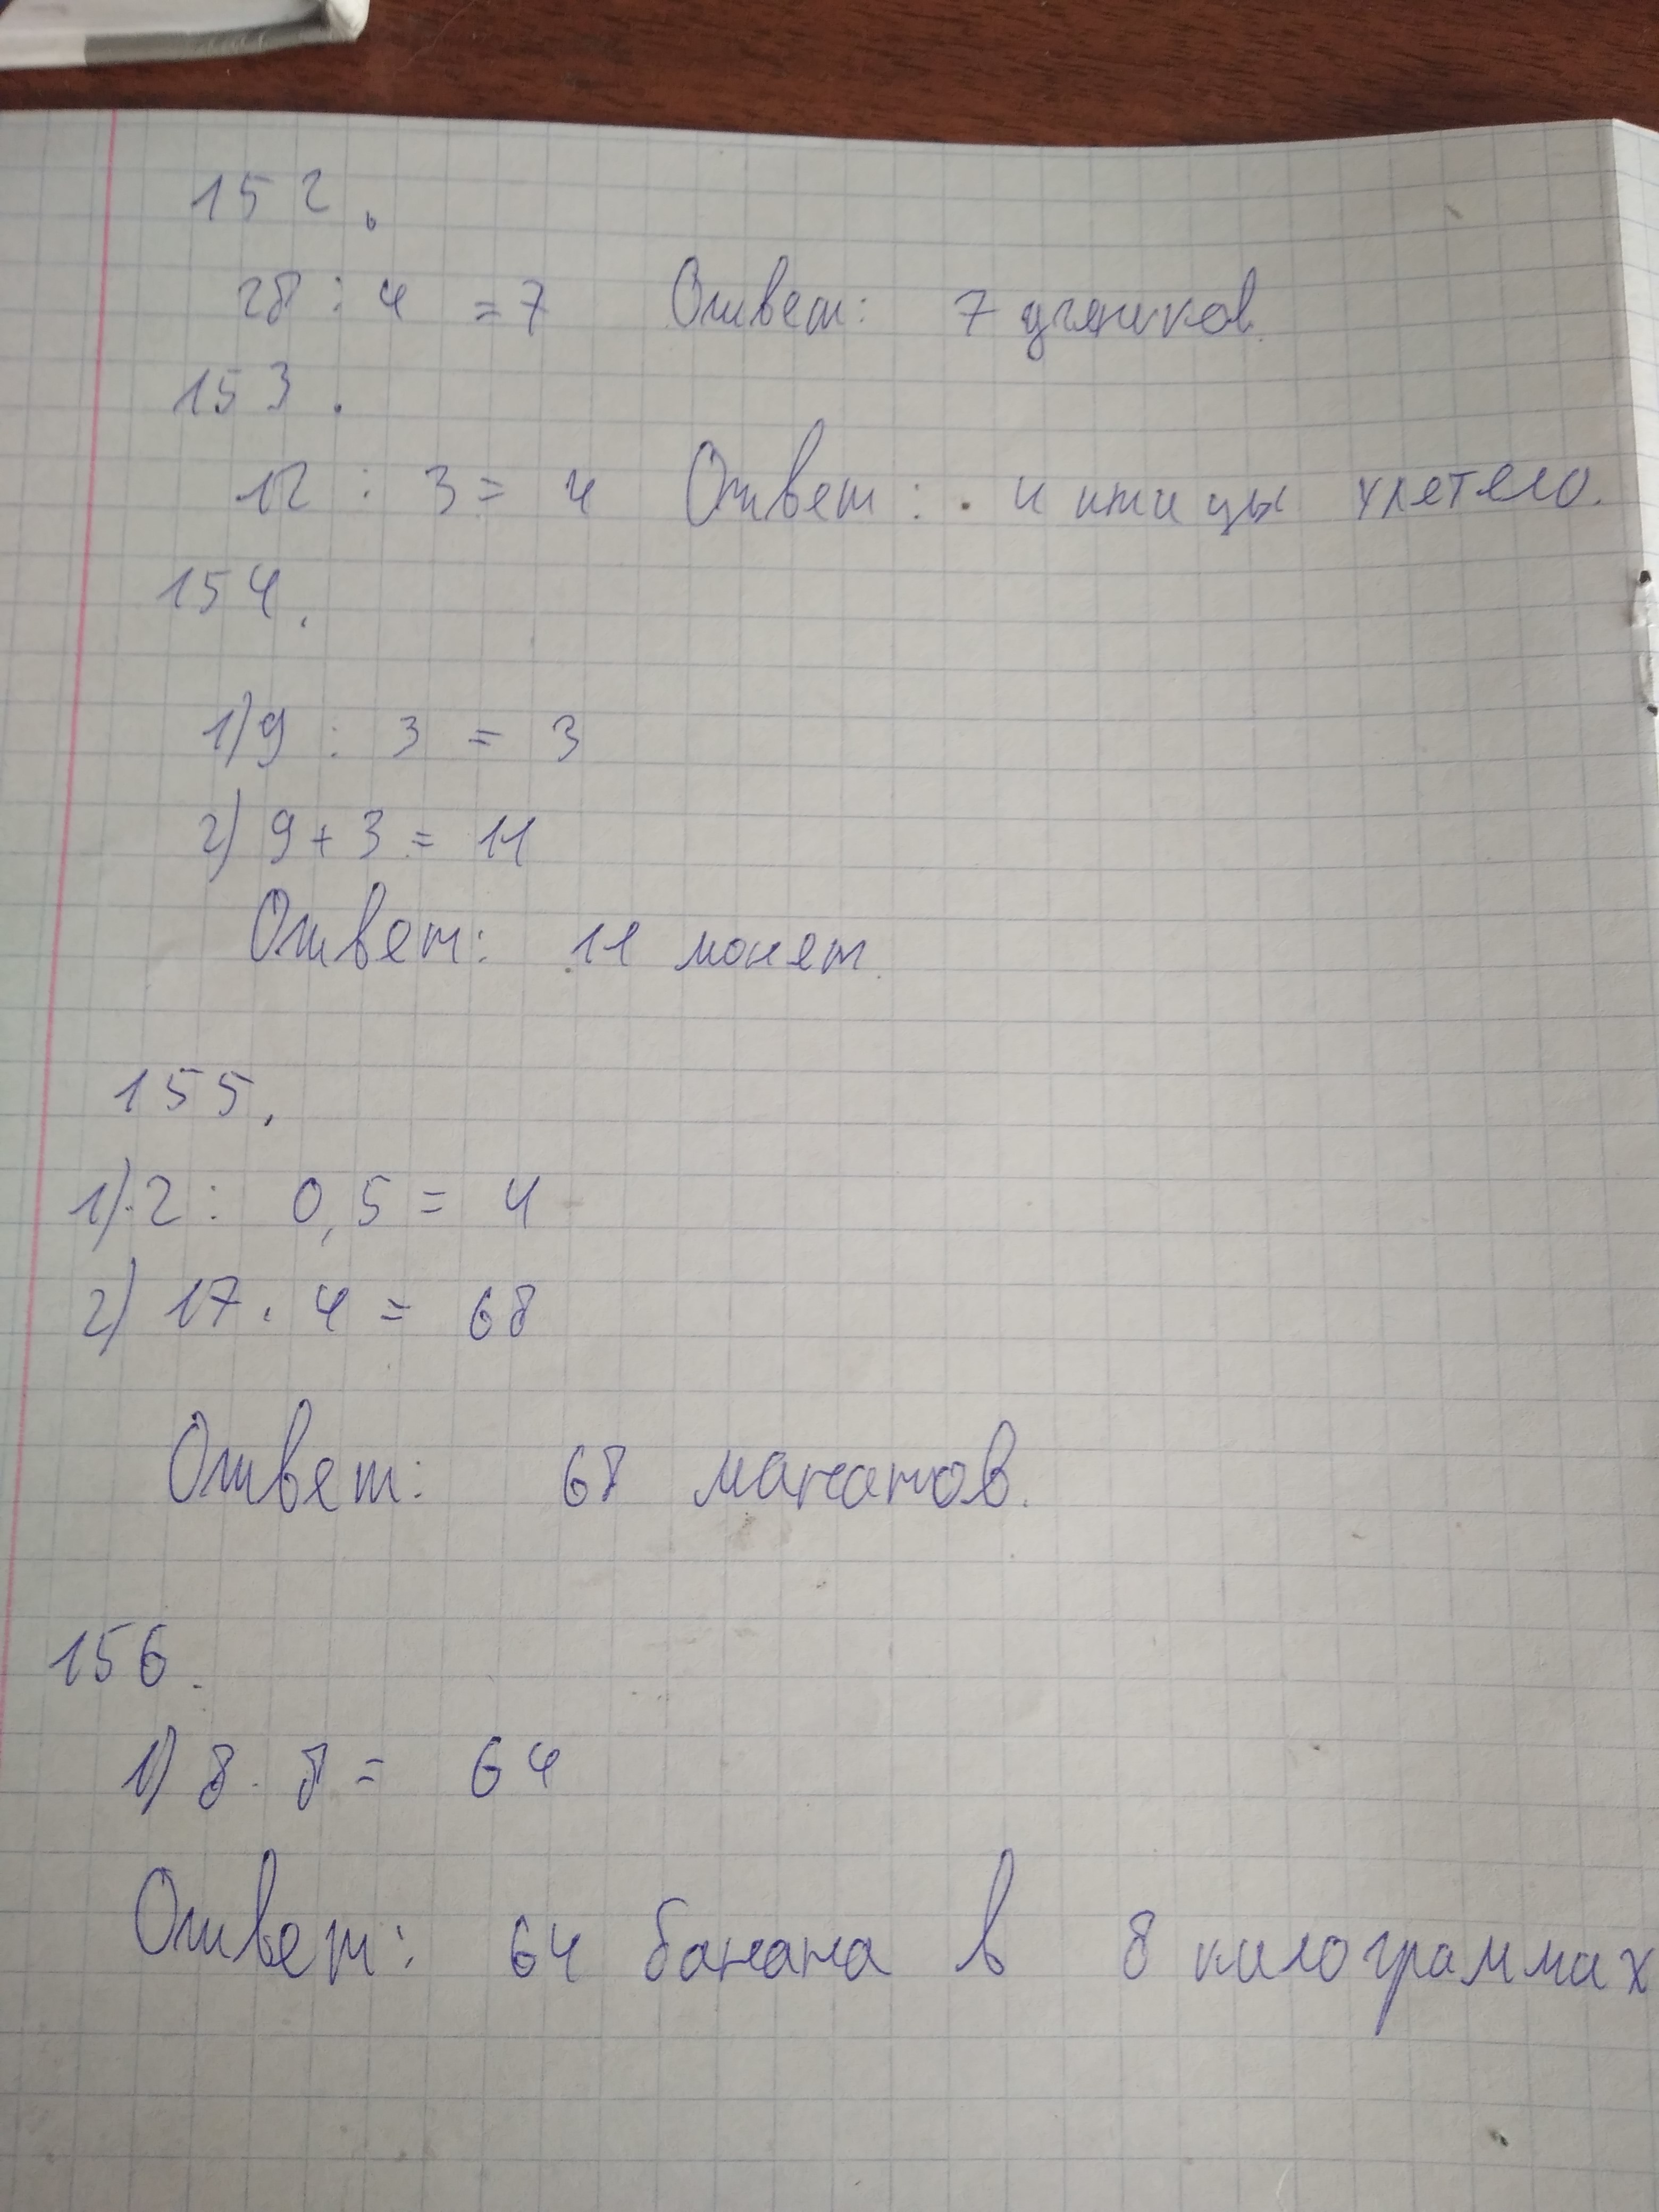 152.
28 : 4 = 7 Ответ: 7 учеников.
153.
12 : 3 = 4 Ответ: 4 птицы улетело.
154.
1) 9 : 3 = 3
2) 9 + 3 = 11
Ответ: 11 монет.
155.
1) 2 : 0,5 = 4
2) 17 · 4 = 68
Ответ: 68 манатов.
156.
1) 8 · 8 = 64
Ответ: 64 банана в 8 килограммах